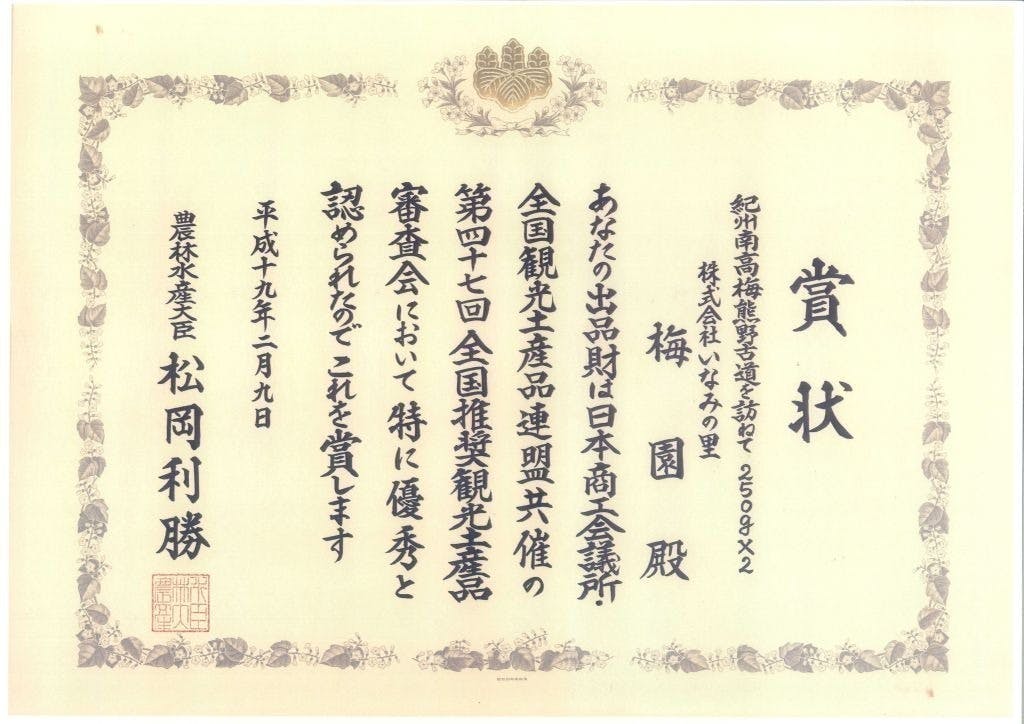 賞状
紀州南高梅熊野古道を訪ねて 250g×2
株式会社 いなみの里
梅園殿
あなたの出品財は日本商工会議所・
全国観光土産品連盟共催の
第四十七回全国推奨観光土産品
審査会において特に優秀と
認められたのでこれを賞します
平成十九年二月九日
農林水産大臣 松岡利勝